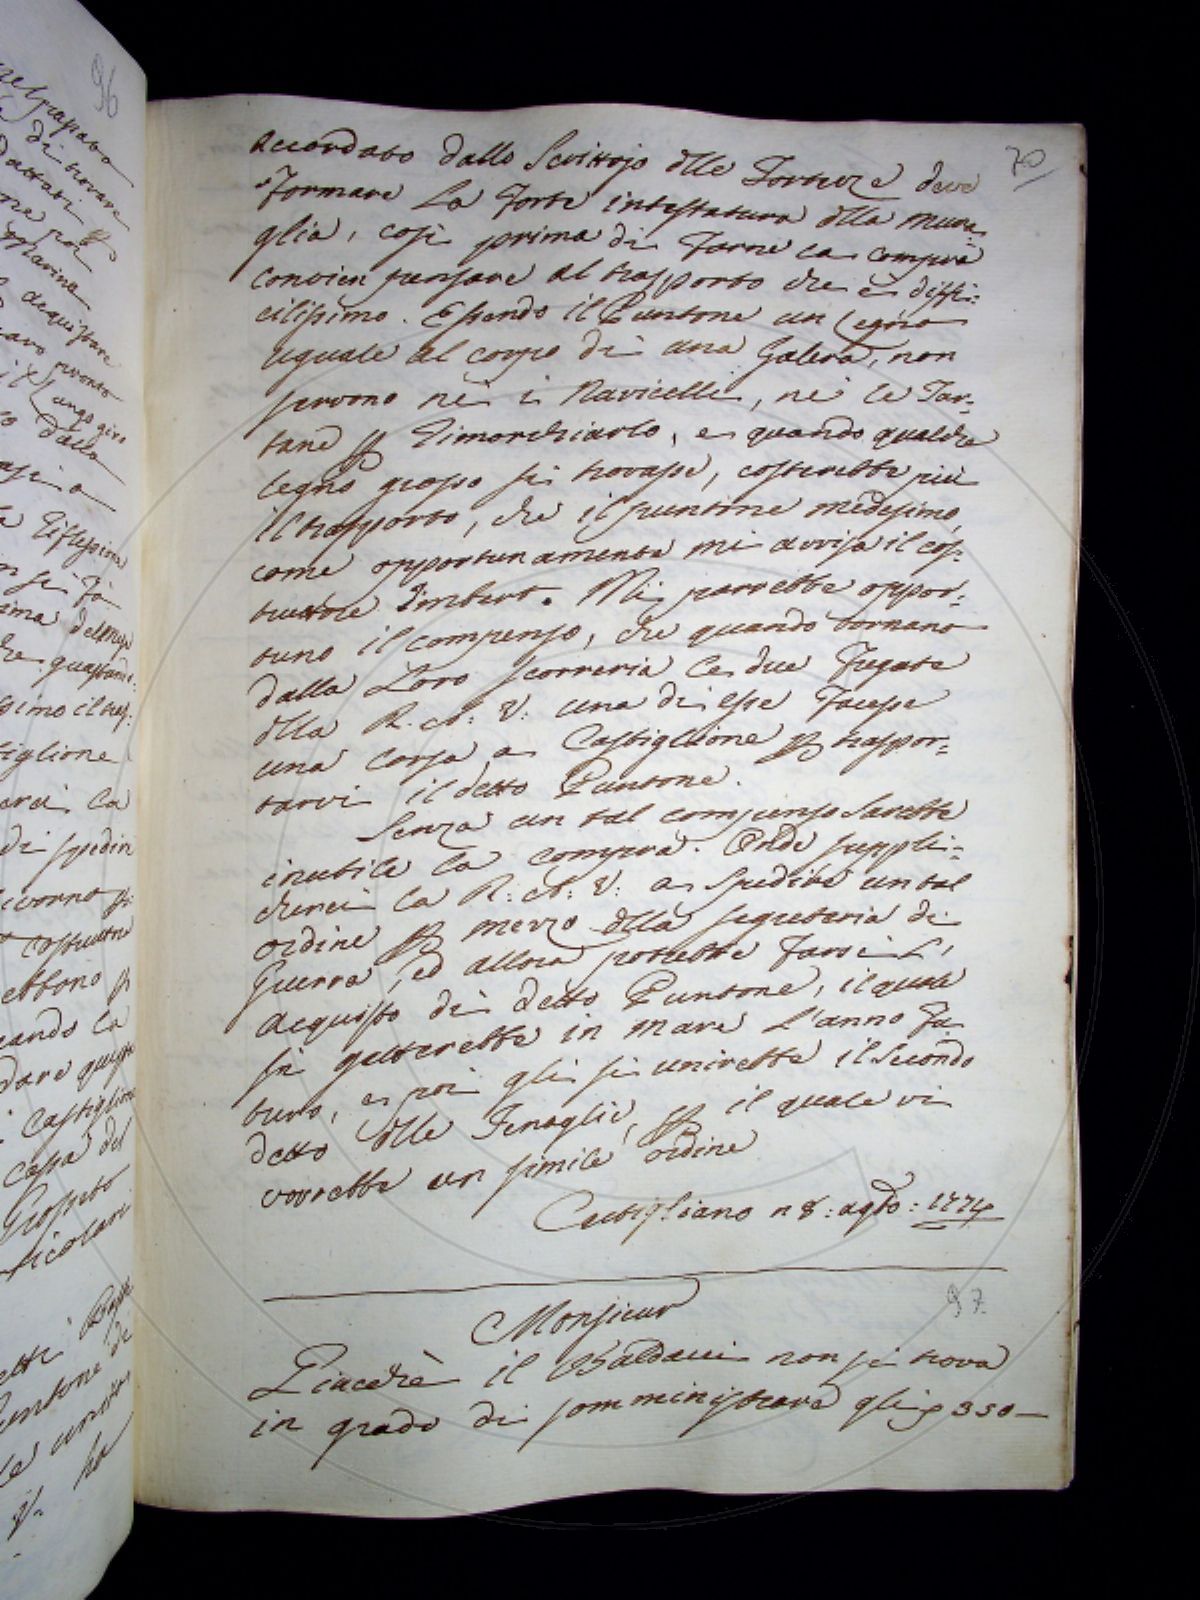 70
accordato dallo Scrittojo dlle Fortezze deve
formare La forte intestatura dlla mura-
glia, così prima di farne la compra
convien pensare al trasporto che è diffi:
cilissimo. Essendo il Puntone un Legno
uguale al corpo di una Galera, non
servono nè i Navicelli, nè le Tar-
tane p rimorchiarlo, e quando qualche
legno grosso si trovasse, costerebbe più
il trasporto, che il puntone medesimo,
come opportunamente mi avvisa il cos-
truttore Imbert. Mi parrebbe oppor:
tuno il compenso, che quando tornano
dalla Loro scorreria Le due Fregate
dlla R. A: V: una di esse facesse
una corsa a Castiglione p traspor-
tarvi il detto Puntone.
Senza un tal compenso sarebbe
inutile la compra. Onde suppli-
cherei la R: A: V: a spedire un tal
ordine p mezzo dlla segreteria di
Guerra, ed allora potrebbe farsi L'
acquisto di detto Puntone, il quale
si getterebbe in mare L'anno fu-
turo, e poi gli si unirebbe il Secondo
detto dlle Tenaglie, p il quale vi
vorrebbe un simile ordine
Castigliano n 8: agto: 1774
97
Monsieur
Piacchè il Baldacci non si trova
in grado di somministrare gli 350-
96
di trovare
Marina
acquistare
pronto
Lungo giro
dalla
Riflessione
si fà
quastando:
tiglione
La
di spedire
ivorno p
costruttore
ebbono p
cando la
dare queste
i Castiglione
cassa del
Grosseto
ticolari
untone di
V.